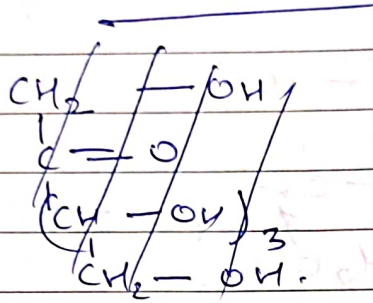 CH₂ — OH
C = O
(CH — OH)₃
CH₂ — OH.